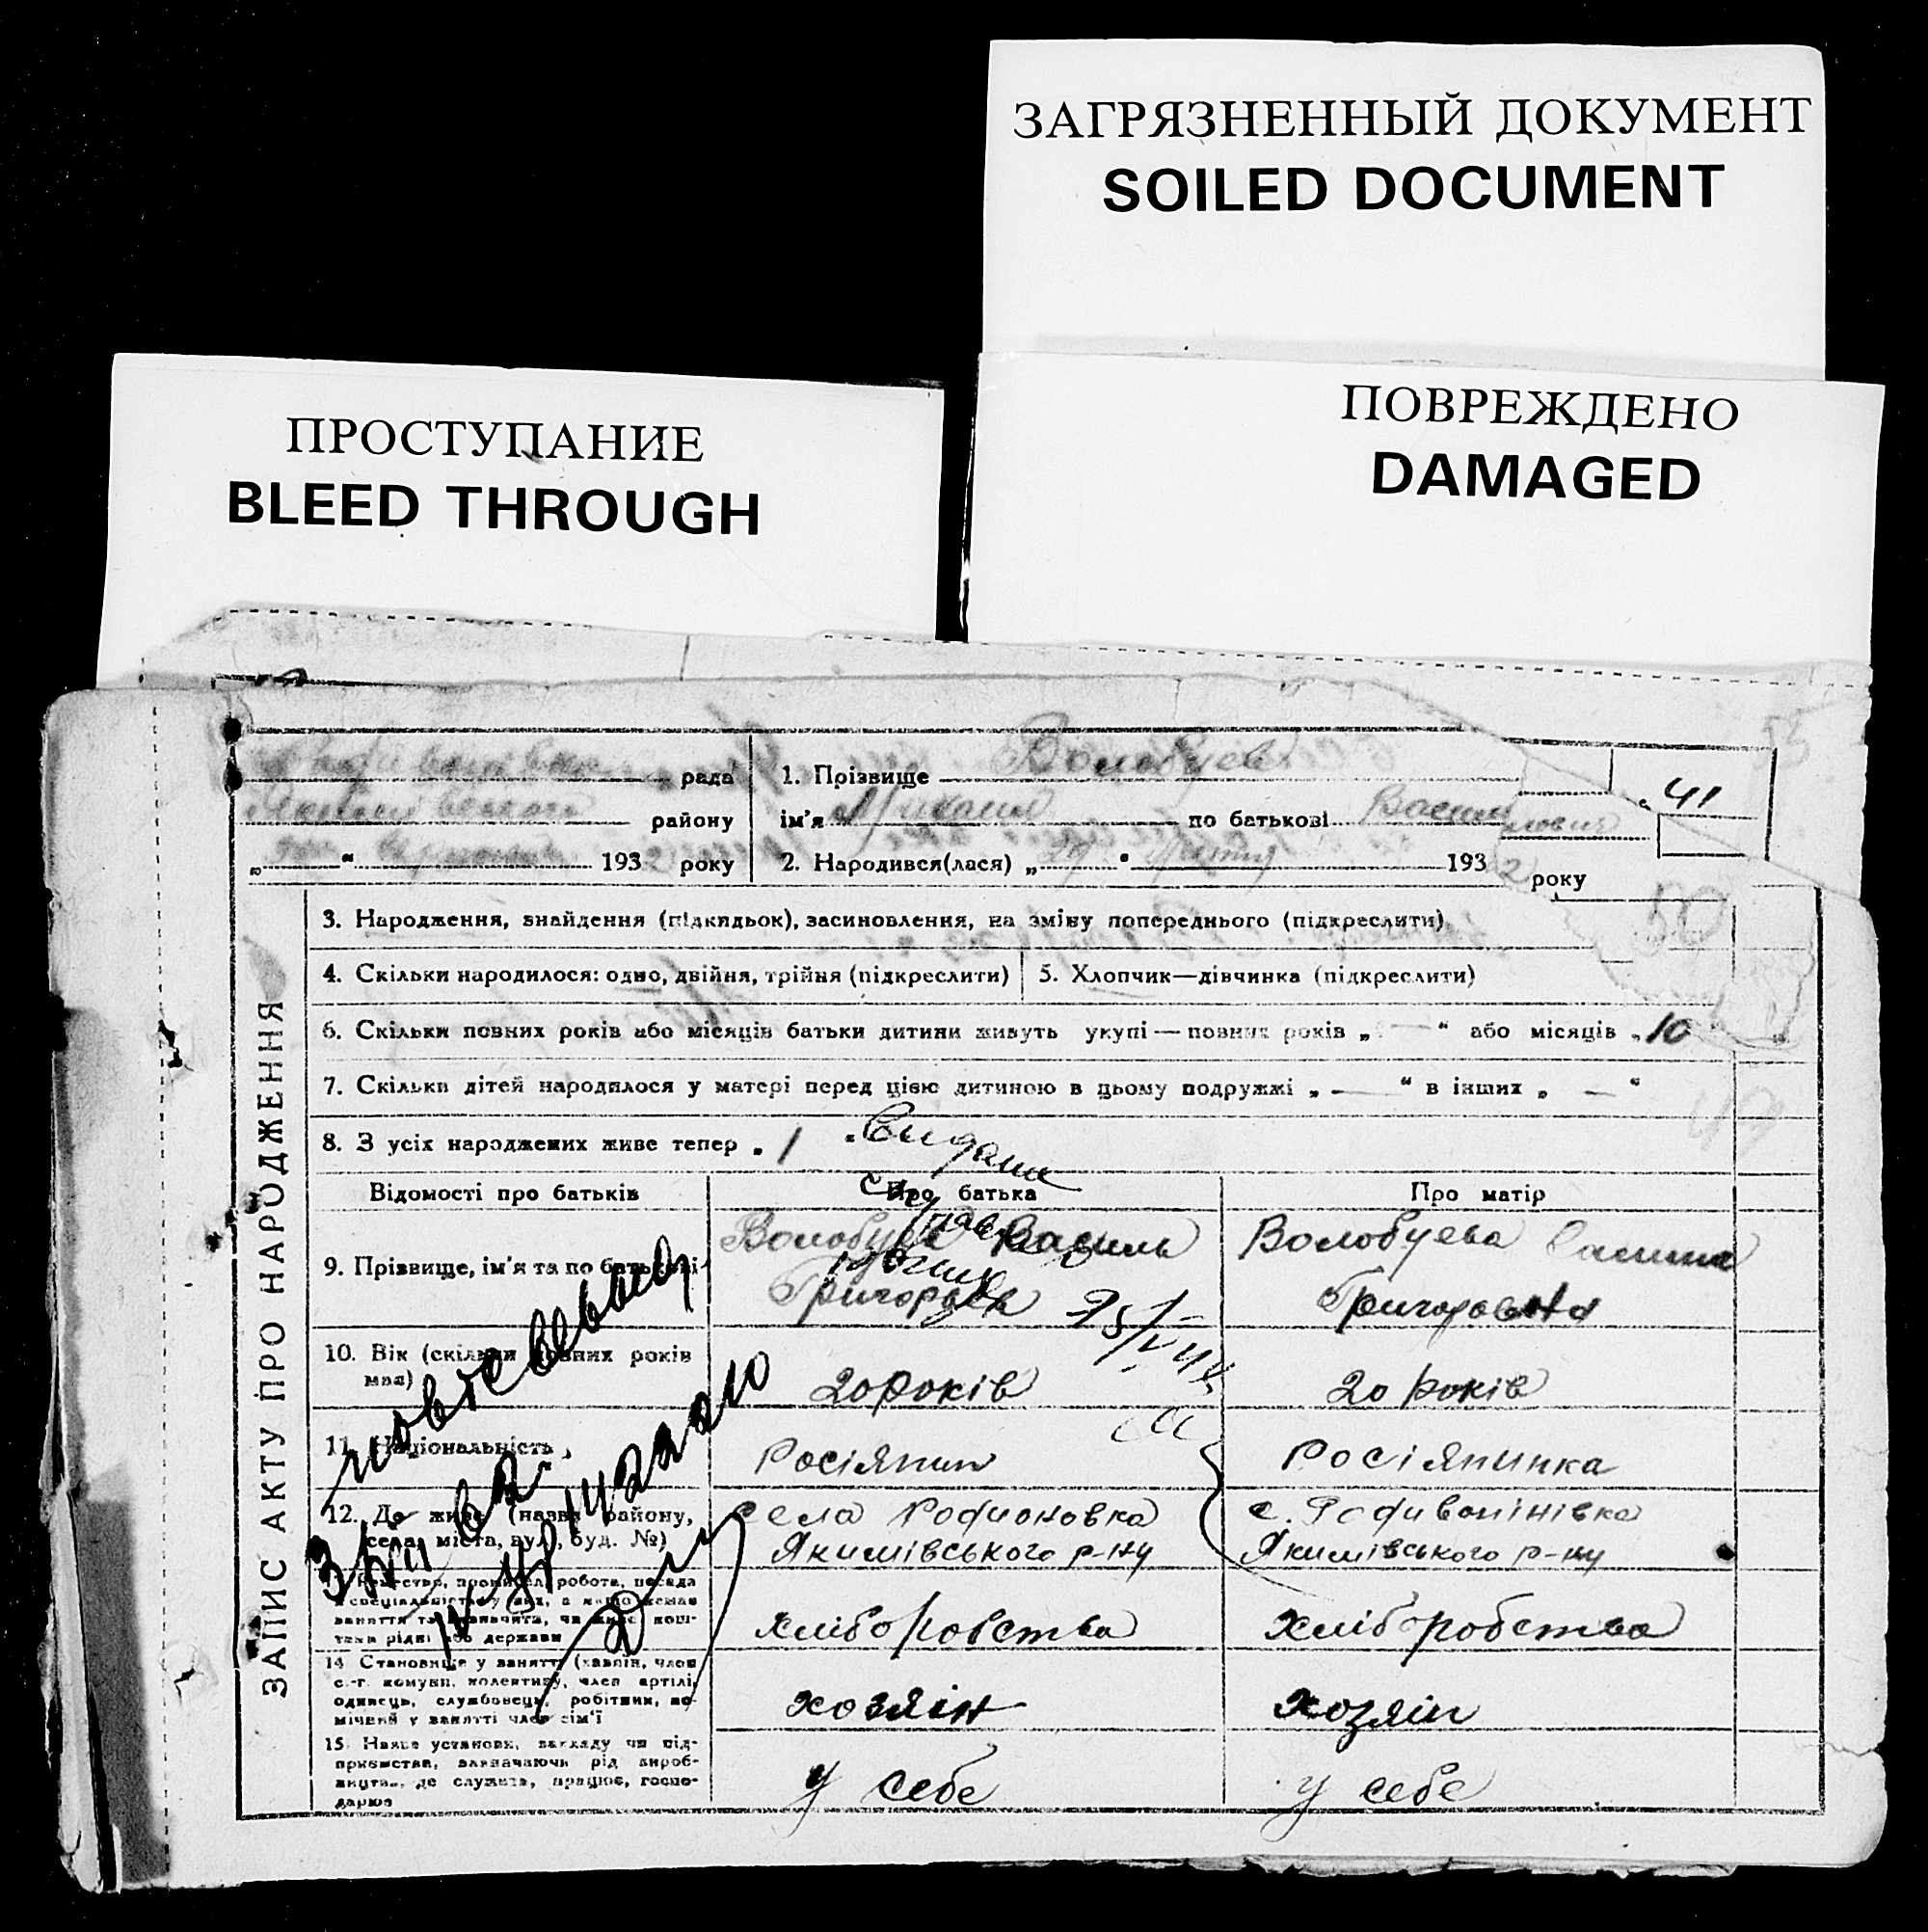 ЗАГРЯЗНЕННЫЙ ДОКУМЕНТ
SOILED DOCUMENT
ПРОСТУПАНИЕ
BLEED THROUGH
ПОВРЕЖДЕНО
DAMAGED
рада
району
„ “ 193 року
1. Прізвище Волобуєв
ім'я Михаил по батькові Васильович
2. Народився(лася) „29“ 193 2 року
41
55
50
49
ЗАПИС АКТУ ПРО НАРОДЖЕННЯ
3. Народження, знайдення (підкидьок), засиновлення, на зміну попереднього (підкреслити)
4. Скільки народилося: одно, двійня, трійня (підкреслити)
5. Хлопчик—дівчинка (підкреслити)
6. Скільки повних років або місяців батьки дитини живуть укупі — повних років „ — “ або місяців „10
7. Скільки дітей народилося у матері перед цією дитиною в цьому подружжі „ — “ в інших „ — “
8. З усіх народжених живе тепер „ 1
Відомості про батьків
Про батька
Про матір
9. Прізвище, ім'я та по батькові
Волобуєв Василь
Волобуева
Григорович
Григоровна
10. Вік (скільки повних років має)
20 років
20 років
11. Національність
Росіянин
Росіянинка
12. Де живе (назва району, села, міста, вул., буд. №)
села Родионовка
Якимівського р-ну
с. Родивонінівка
Якимівського р-ну
хліборобства
хліборобства
14. Становище у занятті (хазяїн, член
с.-г. комуни, колективу, член артілі,
одинець, службовець, робітник, по-
мічний у занятті член сім'ї
хозяін
хозяін
15. Назва установи, закладу чи під-
приємства, зазначаючи рід вироб-
ництва, де служить, працює, госпо-
дарює
у себе
у себе